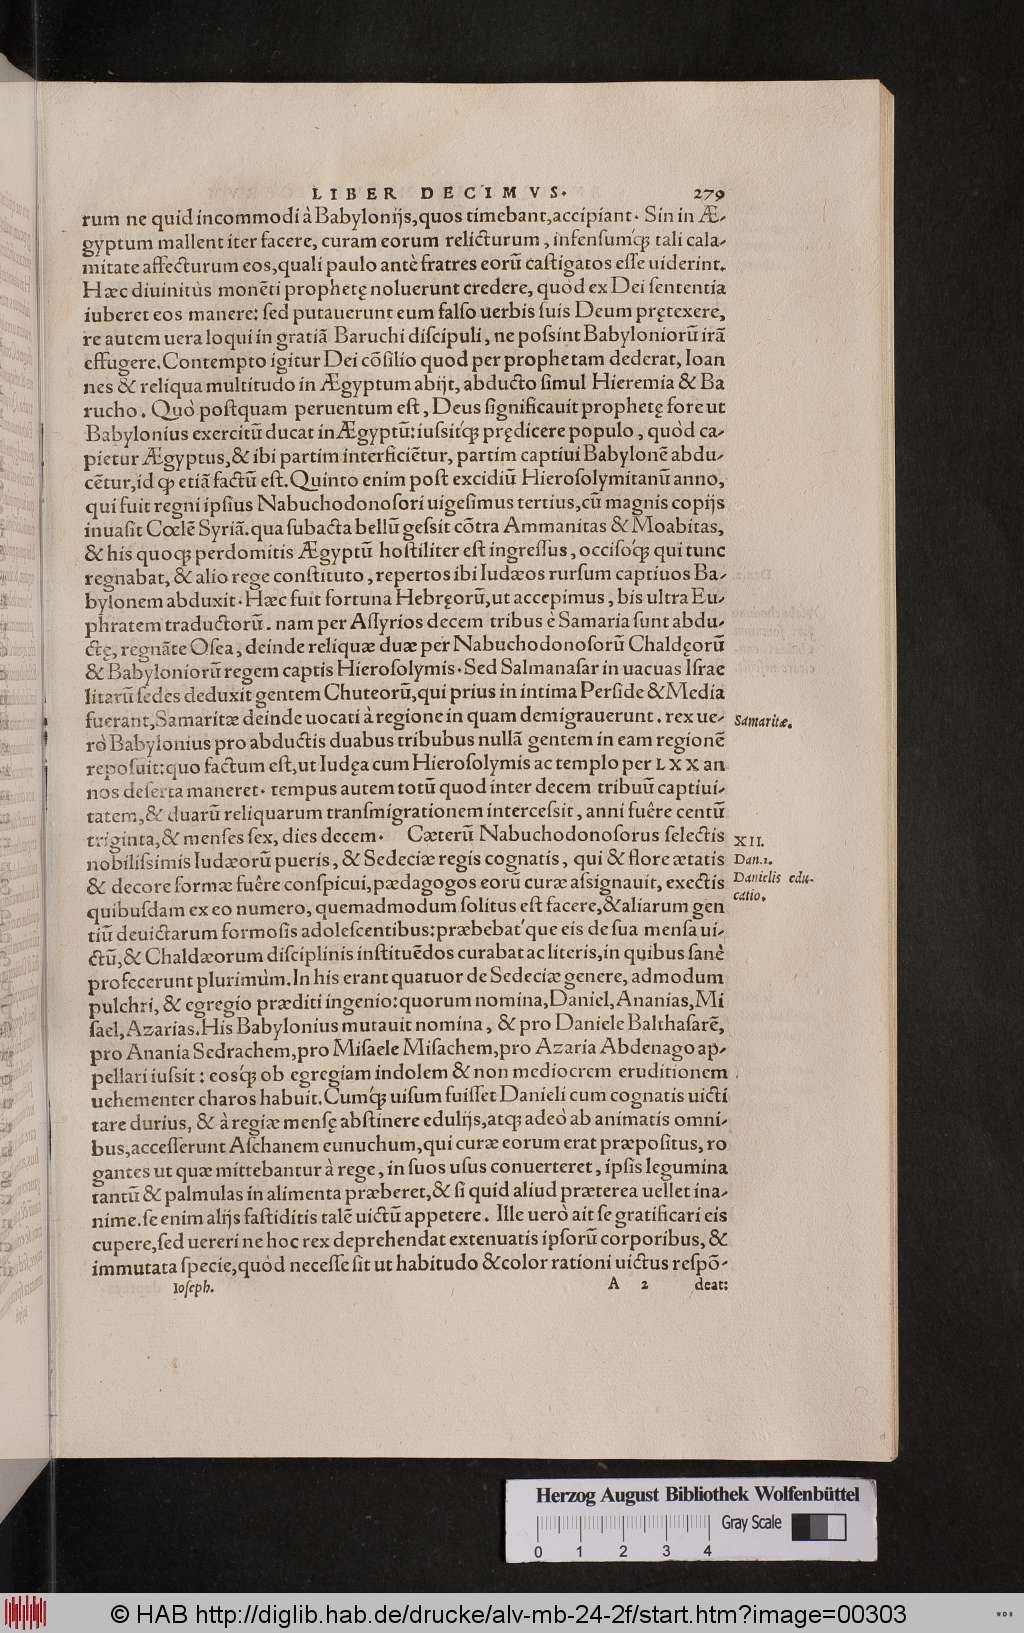 LIBER DECIMVS. 279
rum ne quid incommodi à Babylonijs, quos timebant, accipiant. Sin in Æ-
gyptum mallent iter facere, curam eorum relicturum, infensumq́; tali cala-
mitate affecturum eos, quali paulo antè fratres eorũ castigatos esse uiderint.
Hæc diuinitùs monẽti prophetę noluerunt credere, quòd ex Dei sententia
iuberet eos manere: sed putauerunt eum falso uerbis suis Deum prętexere,
re autem uera loqui in gratiã Baruchi discipuli, ne possint Babyloniorũ irã
effugere. Contempto igitur Dei cõsilio quod per prophetam dederat, Ioan
nes & reliqua multitudo in Ægyptum abijt, abducto simul Hieremia & Ba
rucho. Quò postquam peruentum est, Deus significauit prophetę fore ut
Babylonius exercitũ ducat in Ægyptũ: iussitq́; prędicere populo, quòd ca-
pietur Ægyptus, & ibi partim interficiẽtur, partim captiui Babylonẽ abdu-
cẽtur, id q; etiã factũ est. Quinto enim post excidiũ Hierosolymitanũ anno,
qui fuit regni ipsius Nabuchodonosori uigesimus tertius, cũ magnis copijs
inuasit Cœlẽ Syriã. qua subacta bellũ gessit cõtra Ammanitas & Moabitas,
& his quoq; perdomitis Ægyptũ hostiliter est ingressus, occisoq́; qui tunc
regnabat, & alio rege constituto, repertos ibi Iudæos rursum captiuos Ba-
bylonem abduxit. Hæc fuit fortuna Hebręorũ, ut accepimus, bis ultra Eu-
phratem traductorũ. nam per Assyrios decem tribus è Samaria sunt abdu-
ctę, regnãte Osea, deinde reliquæ duæ per Nabuchodonosorũ Chaldęorũ
& Babyloniorũ regem captis Hierosolymis. Sed Salmanasar in uacuas Israe
litarũ sedes deduxit gentem Chuteorũ, qui prius in intima Perside & Media
fuerant, Samaritæ deinde uocati à regione in quam demigrauerunt. rex ue-
Samaritæ.
rò Babylonius pro abductis duabus tribubus nullã gentem in eam regionẽ
reposuit: quo factum est, ut Iudęa cum Hierosolymis ac templo per LXX an
nos deserta maneret. tempus autem totũ quod inter decem tribuũ captiui-
tatem, & duarũ reliquarum transmigrationem intercessit, anni fuêre centũ
triginta, & menses sex, dies decem. Cæterũ Nabuchodonosorus selectis
XII.
nobilissimis Iudæorũ pueris, & Sedeciæ regis cognatis, qui & flore ætatis
Dan.1.
& decore formæ fuêre conspicui, pædagogos eorũ curæ assignauit, exectis
Danielis edu-
catio.
quibusdam ex eo numero, quemadmodum solitus est facere, & aliarum gen
tiũ deuictarum formosis adolescentibus: præbebat́que eis de sua mensa ui-
ctũ, & Chaldæorum disciplinis instituẽdos curabat ac literis, in quibus sanè
profecerunt plurimùm. In his erant quatuor de Sedeciæ genere, admodum
pulchri, & egregio præditi ingenio: quorum nomina, Daniel, Ananias, Mi
sael, Azarias. His Babylonius mutauit nomina, & pro Daniele Balthasarẽ,
pro Anania Sedrachem, pro Misaele Misachem, pro Azaria Abdenago ap-
pellari iussit: eosq́; ob egregiam indolem & non mediocrem eruditionem
uehementer charos habuit. Cumq́; uisum fuisset Danieli cum cognatis uicti
tare durius, & à regiæ mensę abstinere edulijs, atq; adeò ab animatis omni-
bus, accesserunt Aschanem eunuchum, qui curæ eorum erat præpositus, ro
gantes ut quæ mittebantur à rege, in suos usus conuerteret, ipsis legumina
tantũ & palmulas in alimenta præberet, & si quid aliud præterea uellet ina-
nime. se enim alijs fastiditis talẽ uictũ appetere. Ille uerò ait se gratificari eis
cupere, sed uereri ne hoc rex deprehendat extenuatis ipsorũ corporibus, &
immutata specie, quòd necesse sit ut habitudo & color rationi uictus respõ-
Ioseph. A 2 deat:
Herzog August Bibliothek Wolfenbüttel
Gray Scale
0 1 2 3 4
© HAB http://diglib.hab.de/drucke/alv-mb-24-2f/start.htm?image=00303